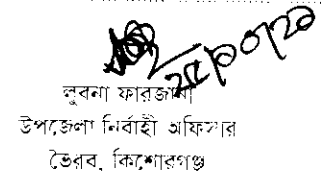 ২৫/১০/২০
লুবনা ফারজানা
উপজেলা নির্বাহী অফিসার
ভৈরব, কিশোরগঞ্জ